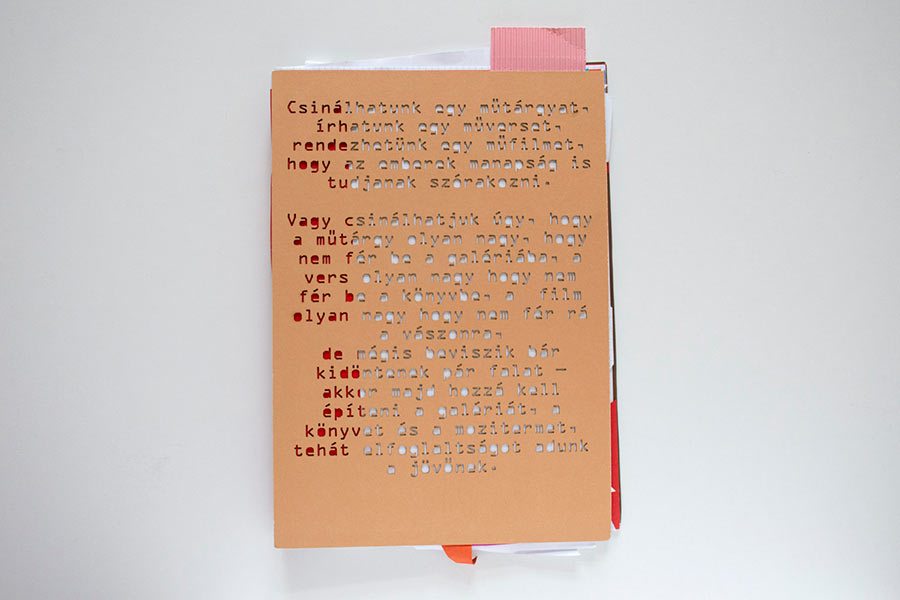 Csinálhatunk egy műtárgyat,
írhatunk egy műverset,
rendezhetünk egy műfilmet,
hogy az emberek manapság is
tudjanak szórakozni.
Vagy csinálhatjuk úgy, hogy
a műtárgy olyan nagy, hogy
nem fér be a galériába, a
vers olyan nagy hogy nem
fér be a könyvbe, a film
olyan nagy hogy nem fér rá
a vászonra,
de mégis beviszik bár
kidöntenek pár falat –
akkor majd hozzá kell
építeni a galériát, a
könyvet és a mozitermet,
tehát elfoglaltságot adunk
a jövőnek.